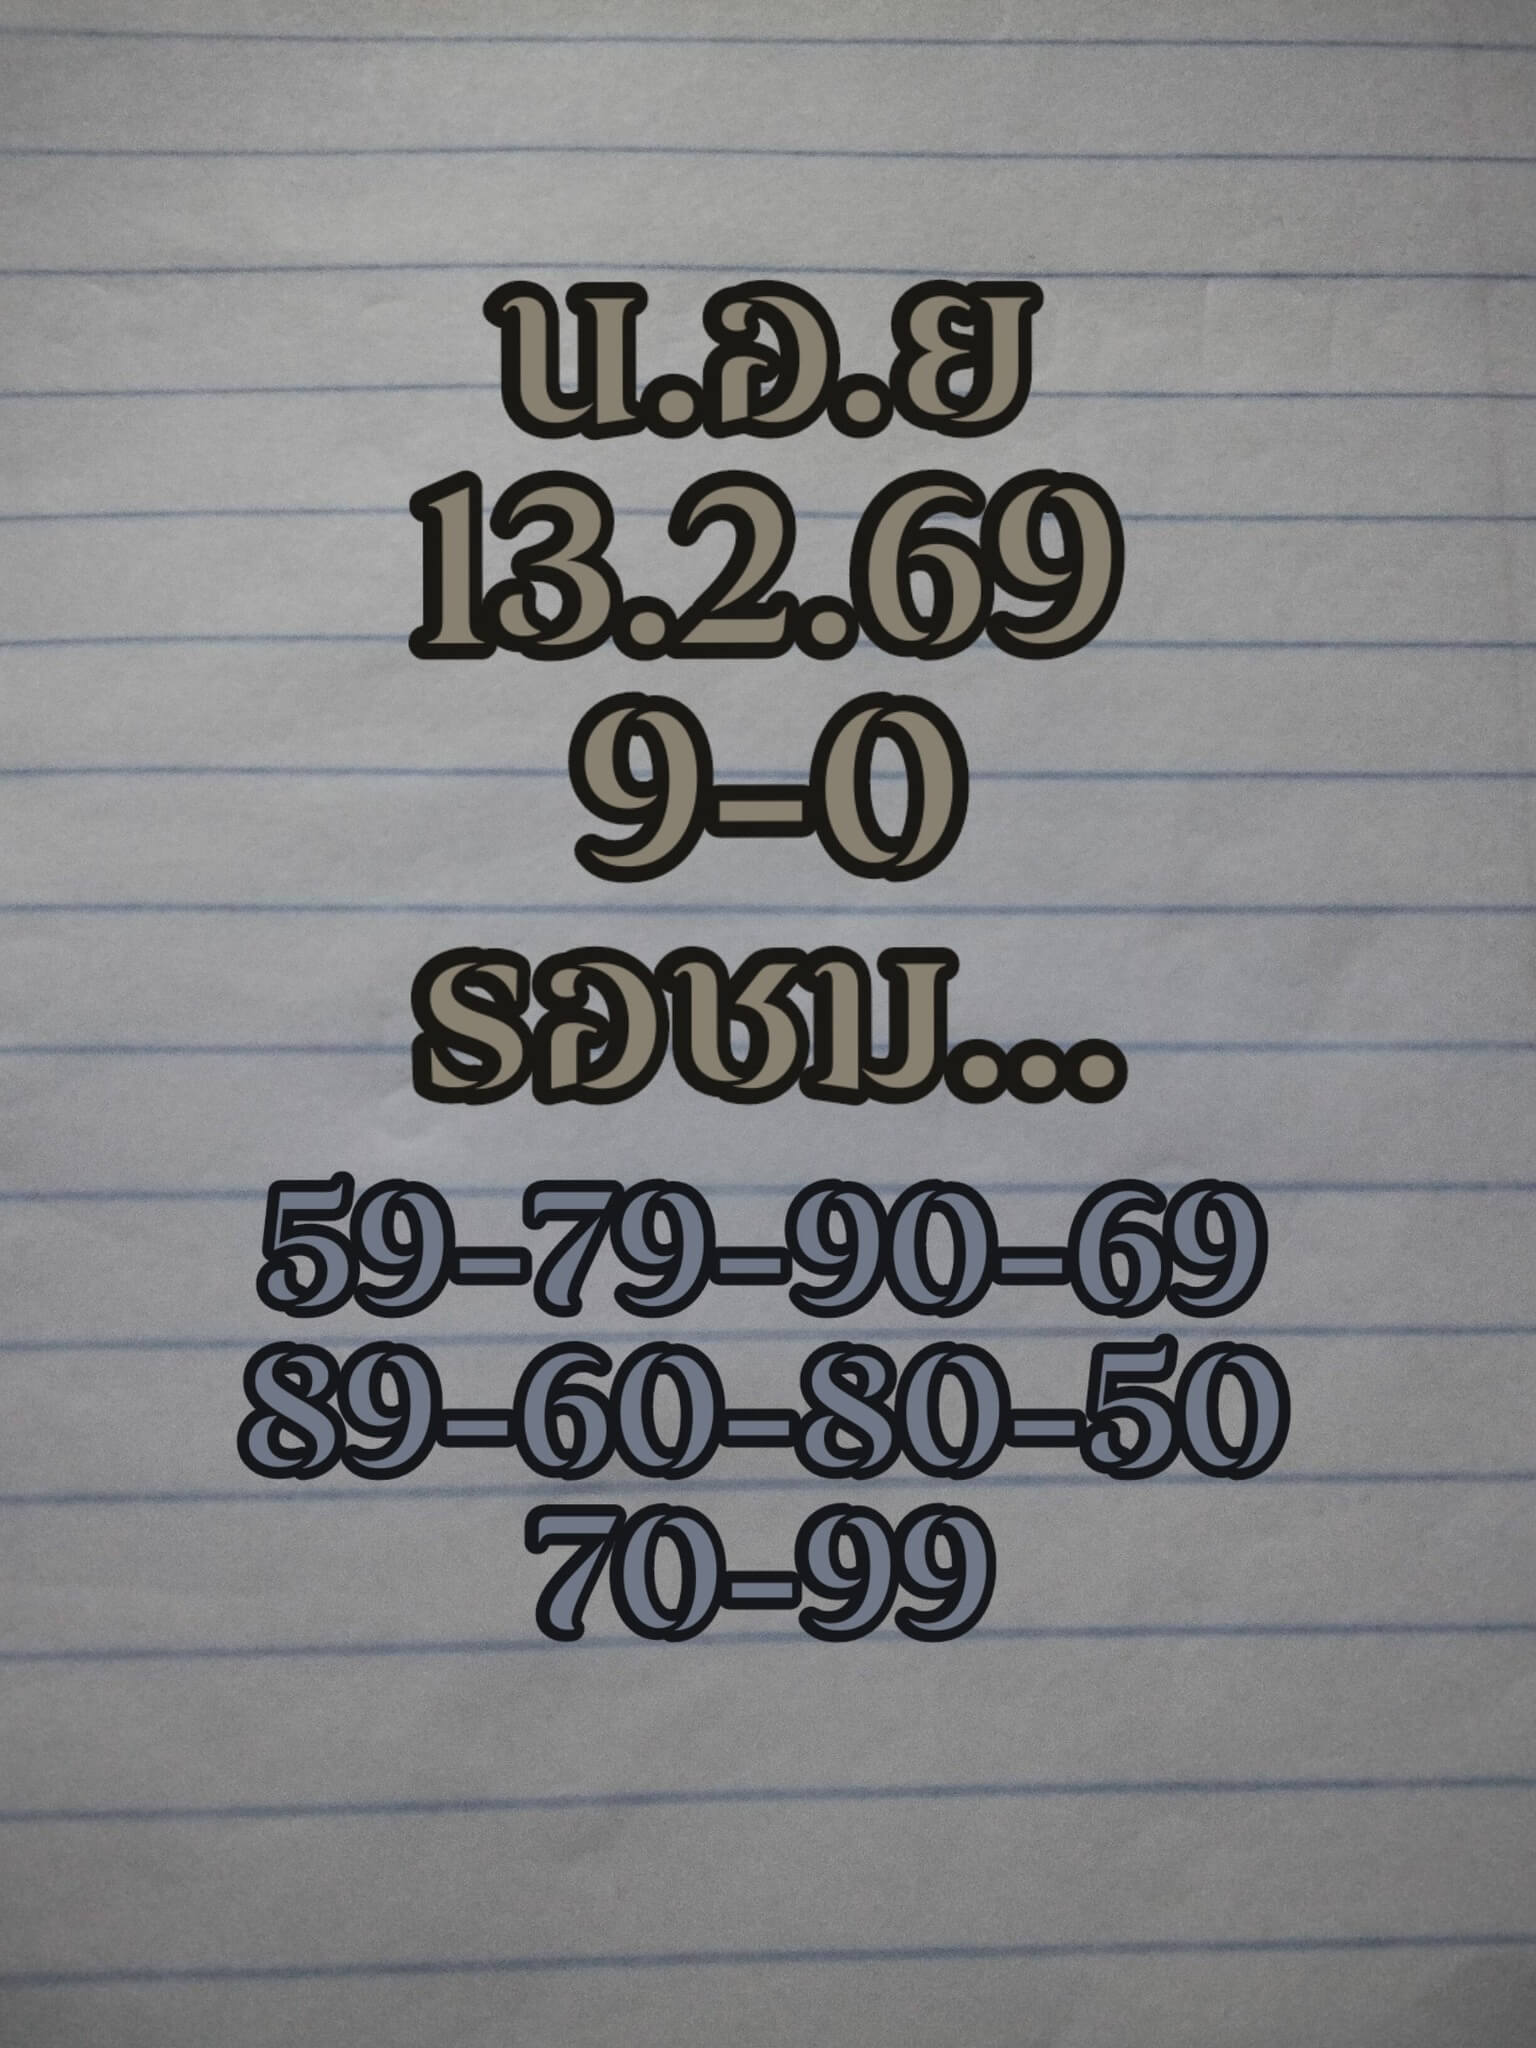 น.อ.ย
13.2.69
9-0
รอชม...
59-79-90-69
89-60-80-50
70-99